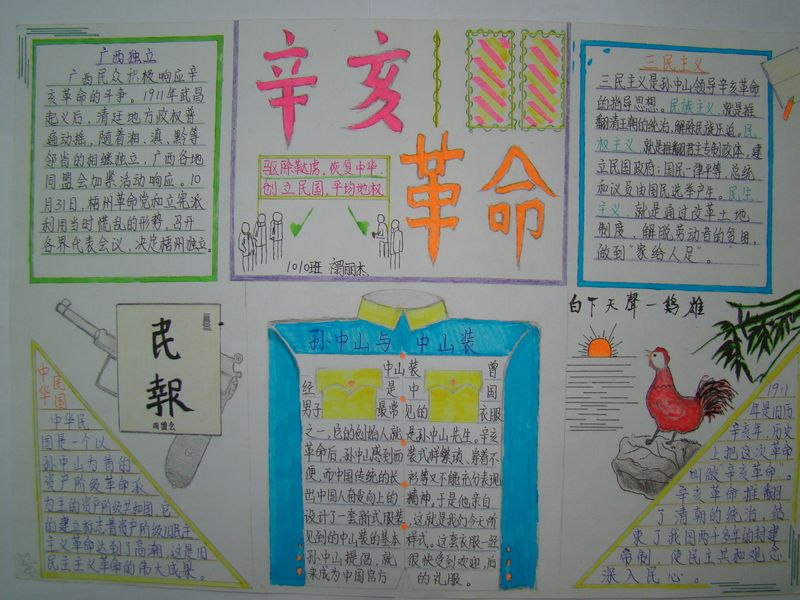 广西独立
广西民众积极响应辛
亥革命的斗争。1911年武昌
起义后，清廷地方政权普
遍动摇，随着湘、滇、黔等
邻省的相继独立，广西各地
同盟会加紧活动响应。10
月31日，梧州革命党和立宪派
利用当时慌乱的形势，召开
各界代表会议，决定梧州独立。
辛亥
革命
驱除鞑虏，恢复中华，
创立民国，平均地权
1010班
三民主义
三民主义是孙中山领导辛亥革命
的指导思想。民族主义，就是推
翻清王朝的统治，解除民族压迫，民
权主义，就是推翻君主专制政体，建
立民国政府，国民一律平等，总统
和议员由国民选举产生。民生
主义，就是通过改革土地
制度，解脱劳动者的贫困，
做到“家给人足”。
民報
中华民国
中华民
国是一个以
孙中山为首的
资产阶级革命派
为主的资产阶级共和国，它
的建立标志着资产阶级旧民主
主义革命达到了高潮，这是旧
民主主义革命的伟大成果。
孙中山与中山装
中山装曾
经是中国
男子最常见的衣服
之一，它的创始人就是孙中山先生。辛亥
革命后，孙中山感到西装式样繁琐，穿着不
便，而中国传统的长衫等又不能充分表现
出中国人奋发向上的精神，于是他亲自
设计了一套新式服装，这就是我们今天所
见到的中山装的基本样式。这套衣服一经
孙中山提倡，就很快受到欢迎，后
来成为中国官方的礼服。
雄鸡一聲天下白
1911
年是旧历
辛亥年，历史
上把这次革命
叫做“辛亥革命”。
辛亥革命推翻
了清朝的统治，结
束了我国两千多年的封建
帝制，使民主共和观念
深入民心。